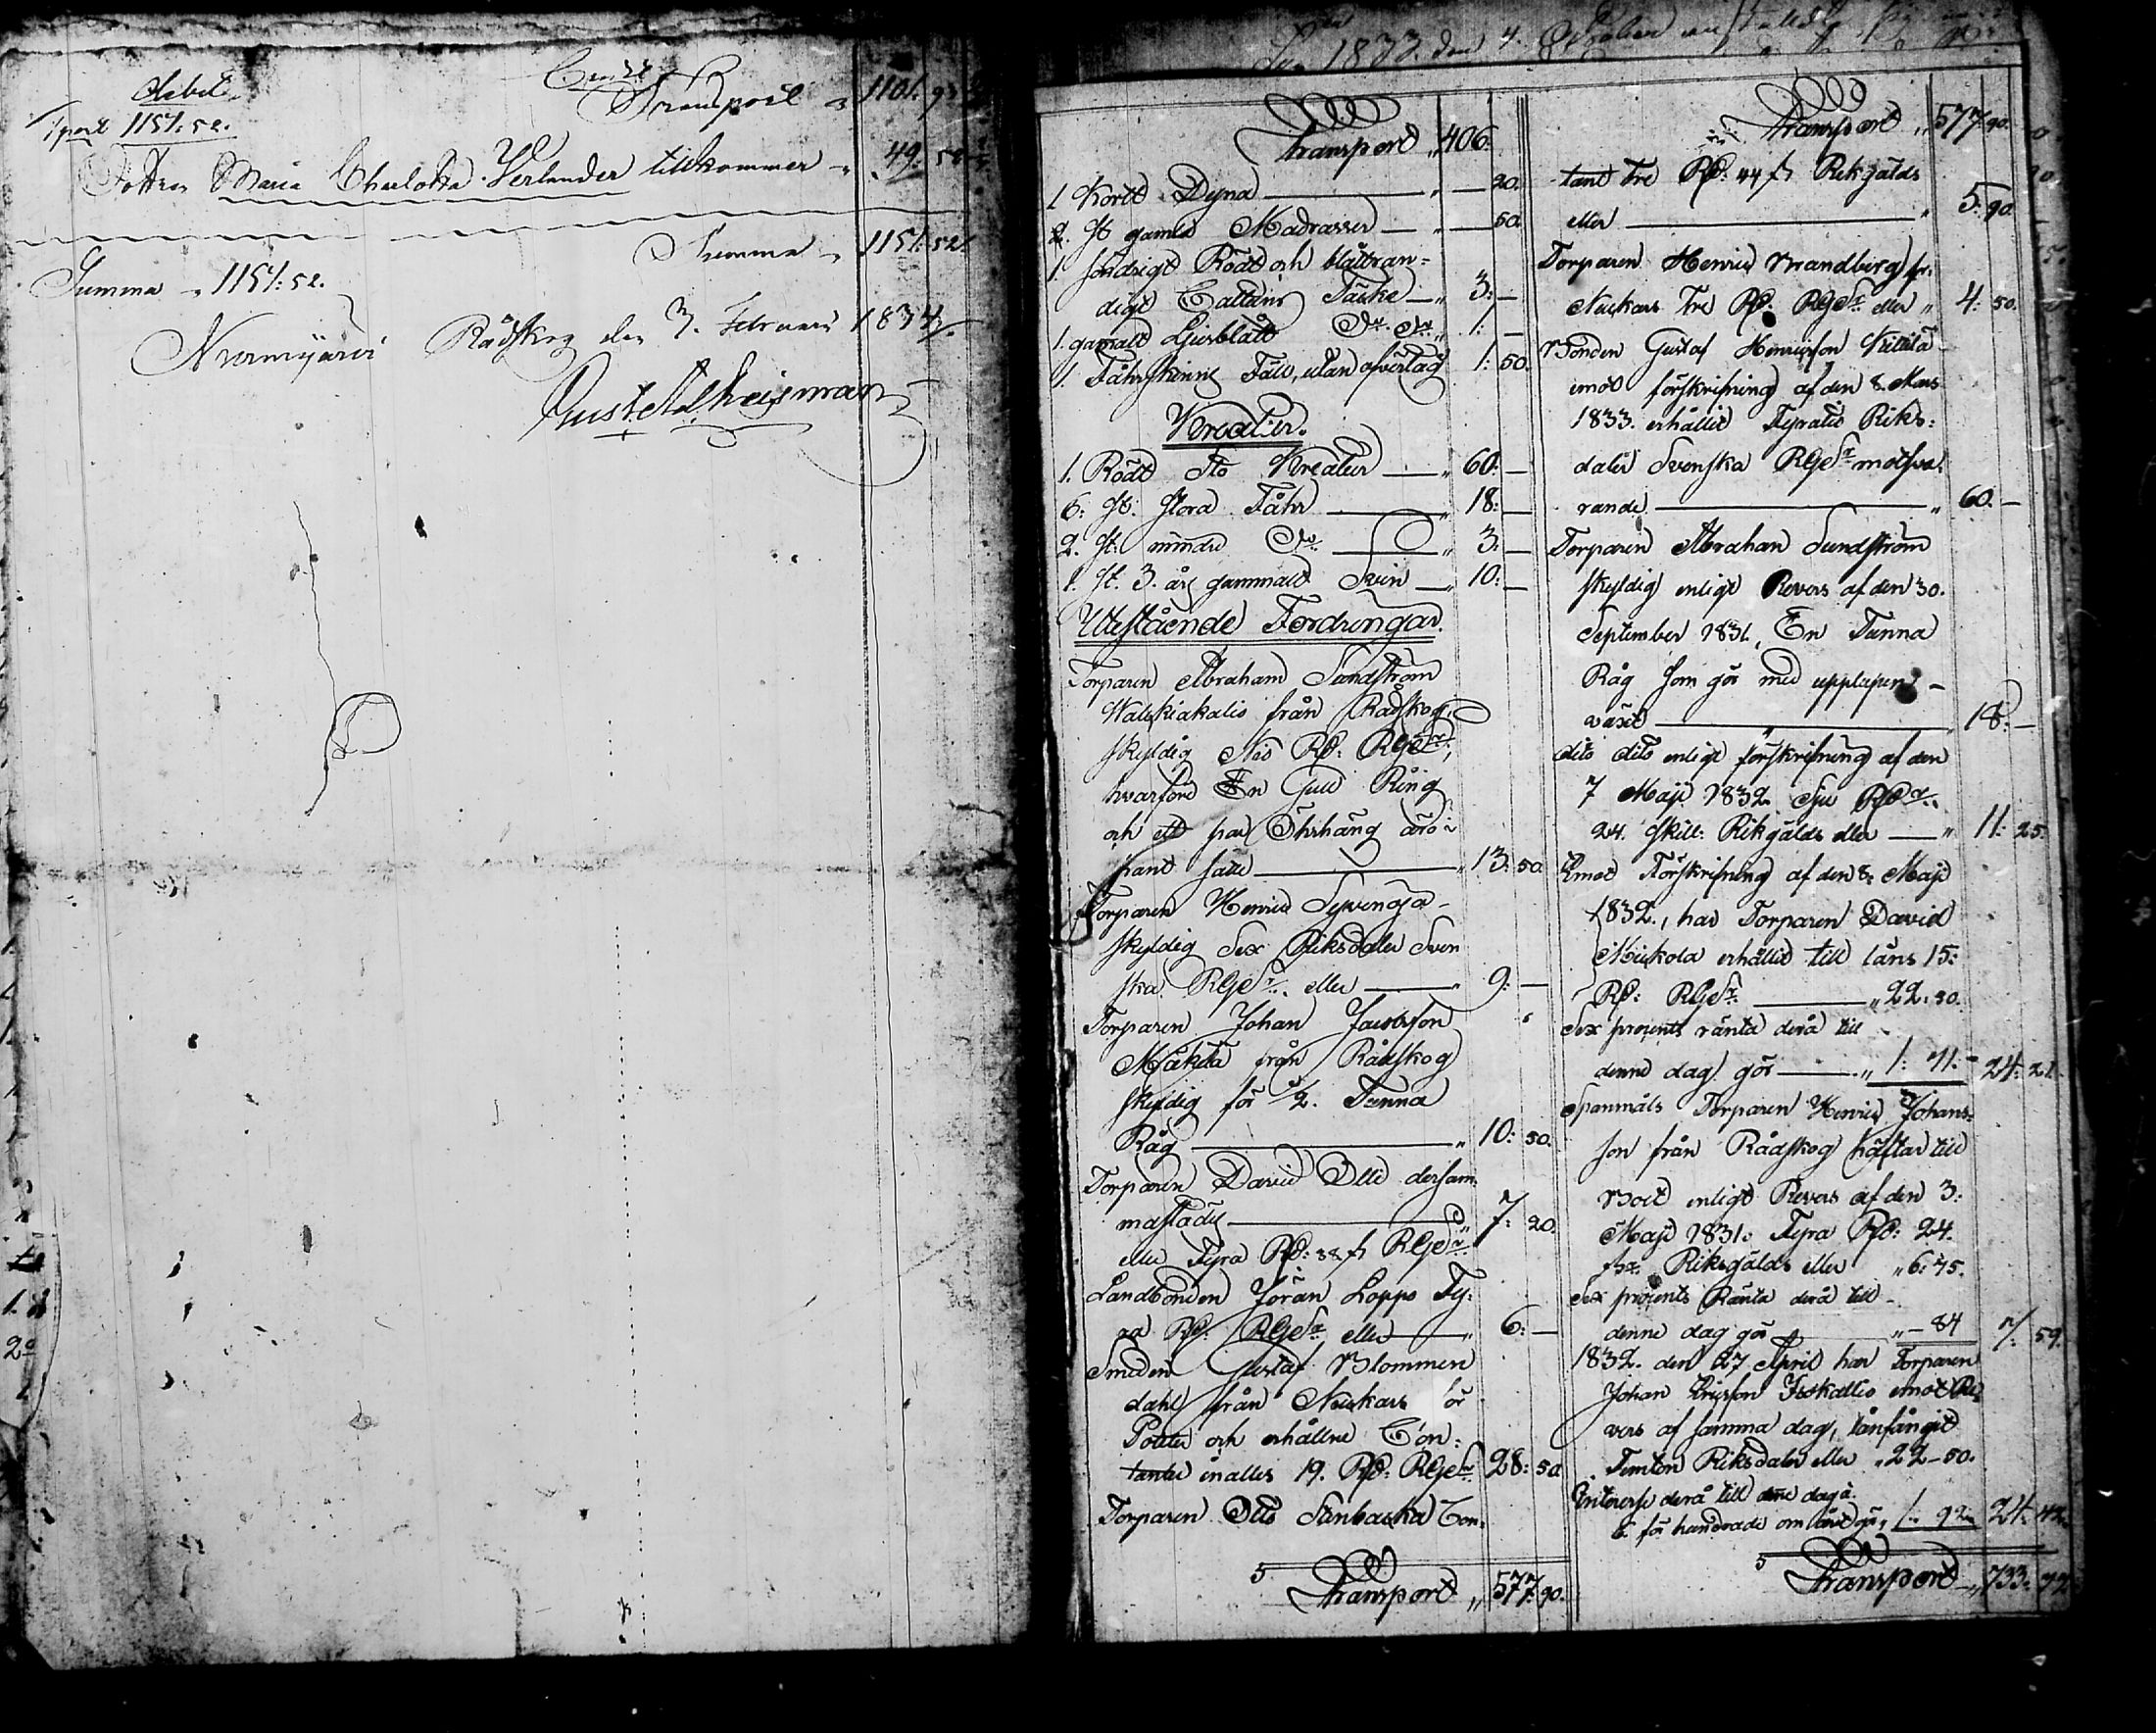 Debet.
Credit
Tport 1151:52.
Transport " 1101. 93
Dottren Maria Charlotta Verlander tillkommer " 49. 58
Summa " 1151:52.
Summa " 1151:52.
Nurmijärvi Rådskog den 3. Februari 1834.
1833 den 4.
Transport " 406.
1 Kort Dyna — 20.
2. St gamla Madrasser — " — 50
1 söndrigt Rödt och blåttran-
digt Cattuns Täcke — " 3: —
1. gamalt Ljusblått Do Do " 1: —
1. Fåhrskinns Fäll, utan öfvertag 1: 50.
Kreatur.
1. Rödt Sto Kreatur — " 60. —
6: St: stora Fåhr — " 18: —
2. St: mindre Do — " 3: —
1. St. 3. års gammalt Svin — " 10: —
Utestående Fordringar.
Torparen Abraham Sandström
Walkiakalio från Rådskog,
skyldig Nio Rd: RGSr,
hvarföre En Guld Ring
och ett par Öhrhäng äro i
pant satte — " 13: 50
Torparen Henric
skyldig Sex Riksdaler Sven
ska RGSr. eller — " 9: —
Torparen Johan Jacobsson
Mäkilä från Rådskog
skyldig för 1/2. Tunna
Råg — " 10: 50.
Torparen David Olli dersam
mastädes — " 7: 20.
eller Fyra Rd: 38 sk RGSr
Landbonden Jöran Loppo Fy-
ra Rd: RGSr eller — " 6: —
Smeden Gustaf Blommen
dahl från Nuckars för
Potater och erhållne Con-
tanter inalles 19. Rd: RGSr 28: 50
Torparen Otto Con-
5 Transport " 577. 90.
Transport " 577 90.
tant Tre Rd: 44 sk Rikgälds
eller — " 5: 90.
Torparen Henric Brandberg fr:
Nuckars Tre Rd: RGSr eller " 4: 50.
Bonden Gustaf Henricsson Kittilä
emot förskrifning af den 8. Mars
1833. erhållit Fyratio Riks-
daler Svenska RGSr motsva-
rande — " 60. —
Torparen Abraham Sundström
skyldig enligt Revers af den 30.
September 1831. En Tunna
Råg som gör med upplupen
växt — " 18: —
dito dito enligt förskrifning af den
7 Maji 1832 Sju Rdr.
24. skill: Rikgälds eller — " 11: 25.
Emot Förskrifning af den 8. Maji
1832., har Torparen David
Mickola erhållit till låns 15:
Rd: RGSr — " 22:50.
Sex procents ränta derå till
denne dag gör — " 1: 71. 24: 21.
Spanmåls Torparen Henric Johans-
son från Rådskog häftar till
Boet enligt Revers af den 3:
Maji 1831. Fyra Rd: 24.
sk: Riksgälds eller " 6:75.
Sex procents Ränta derå till
denne dag gör " — 84 7: 59.
1832. den 27 April har Torparen
Johan Ericsson Isokallio emot Re-
vers af samma dag, lånfångit
Femton Riksdaler eller " 22—50.
Intresse derå till denne dag à
6 för hundrade om året gör, 1: 92 24: 42.
5 Transport " 733: 77